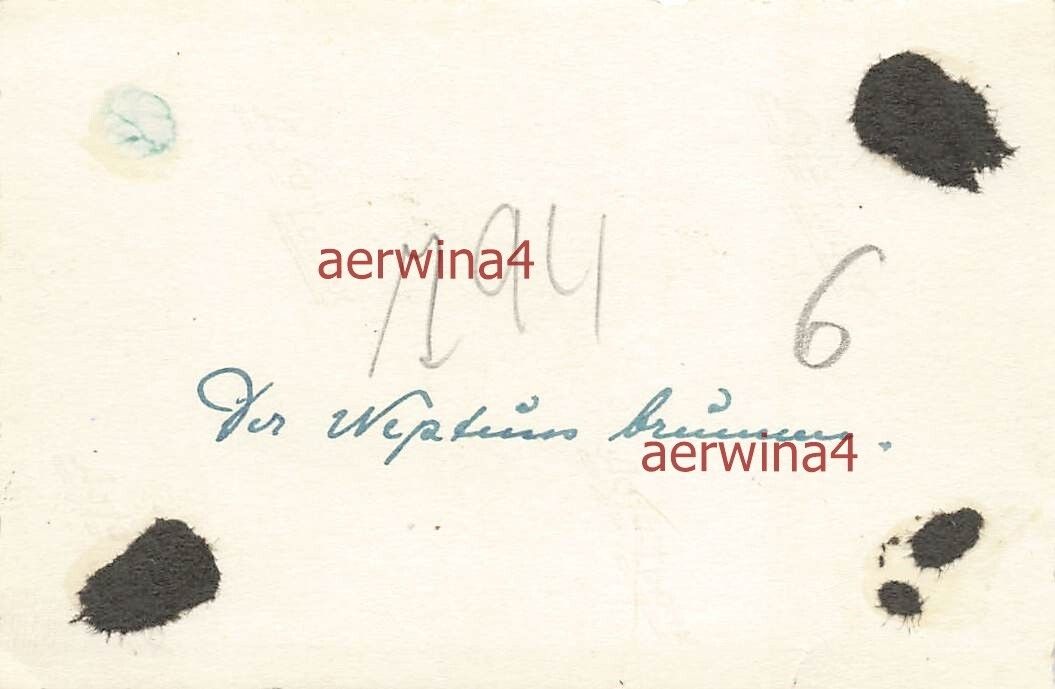 aerwina4
194
6
Der Neptuns brunnen.
aerwina4